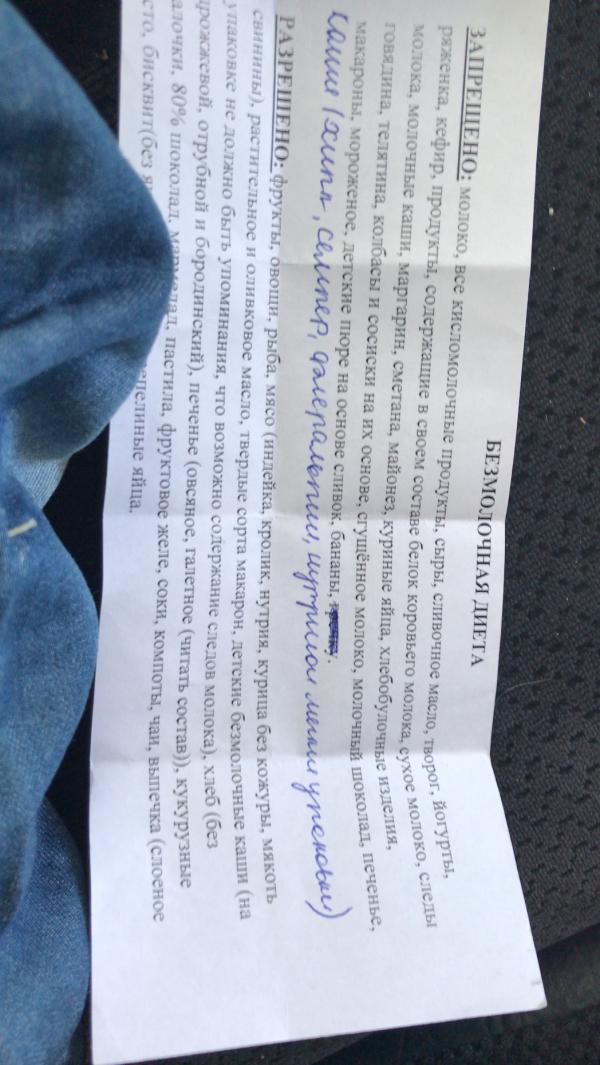 БЕЗМОЛОЧНАЯ ДИЕТА
ЗАПРЕЩЕНО: молоко, все кисломолочные продукты, сыры, сливочное масло, творог, йогурты,
ряженка, кефир, продукты, содержащие в своем составе белок коровьего молока, сухое молоко, следы
молока, молочные каши, маргарин, сметана, майонез, куриные яйца, хлебобулочные изделия,
говядина, телятина, колбасы и сосиски на их основе, сгущённое молоко, молочный шоколад, печенье,
макароны, мороженое, детские пюре на основе сливок, бананы,
каши (хипп, семпер, упаковки)
РАЗРЕШЕНО: фрукты, овощи, рыба, мясо (индейка, кролик, нутрия, курица без кожуры, мякоть
свинины), растительное и оливковое масло, твердые сорта макарон, детские безмолочные каши (на
упаковке не должно быть упоминания, что возможно содержание следов молока), хлеб (без
рожжевой, отрубной и бородинский), печенье (овсяное, галетное (читать состав)), кукурузные
алочки, 80% шоколад, мармелад, пастила, фруктовое желе, соки, компоты, чаи, выпечка (слоеное
сто, бисквит(без я епелиные яйца.